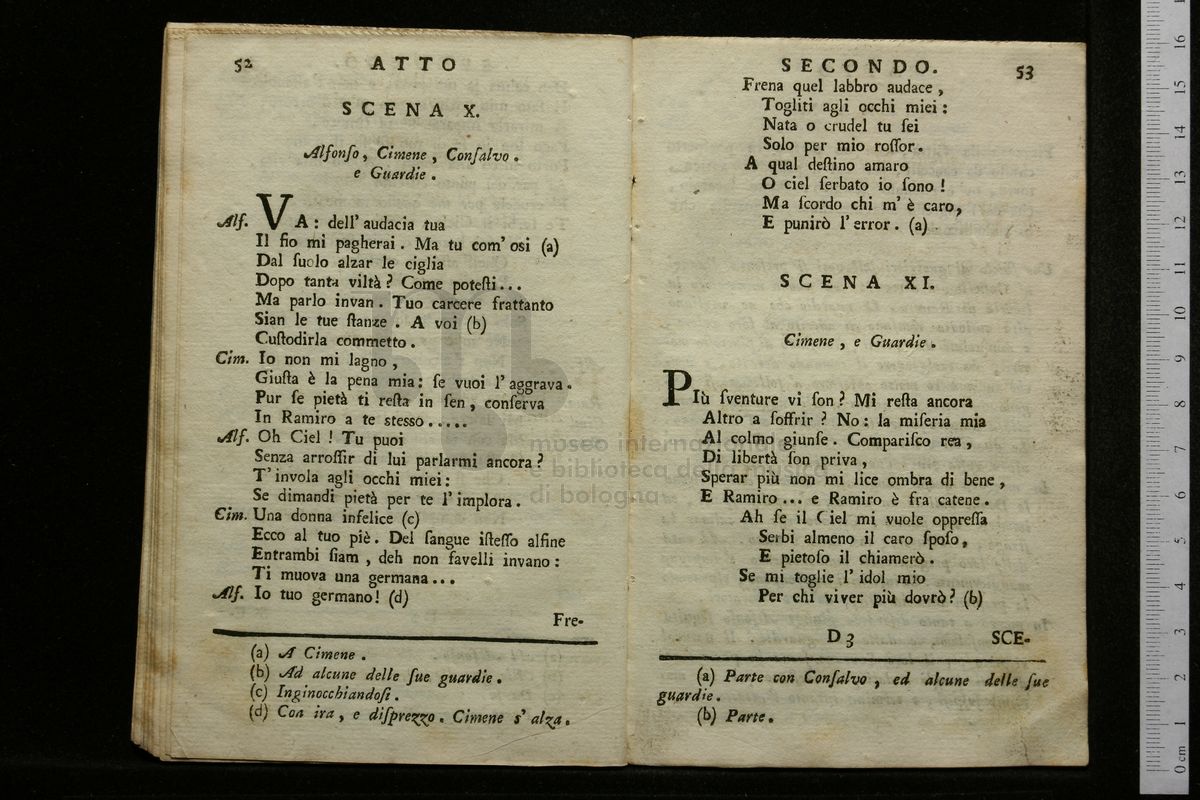 52 ATTO
SCENA X.
Alfonſo, Cimene, Conſalvo.
e Guardie.
Alf. VA: dell' audacia tua
Il fio mi pagherai. Ma tu com' osi (a)
Dal ſuolo alzar le ciglia
Dopo tanta viltà? Come poteſti...
Ma parlo invan. Tuo carcere frattanto
Sian le tue ſtanze. A voi (b)
Cuſtodirla commetto.
Cim. Io non mi lagno,
Giuſta è la pena mia: ſe vuoi l' aggrava.
Pur ſe pietà ti reſta in ſen, conſerva
In Ramiro a te stesso.....
Alf. Oh Ciel! Tu puoi
Senza arroſſir di lui parlarmi ancora?
T' invola agli occhi miei:
Se dimandi pietà per te l' implora.
Cim. Una donna infelice (c)
Ecco al tuo piè. Del ſangue iſteſſo alfine
Entrambi ſiam, deh non favelli invano:
Ti muova una germana...
Alf. Io tuo germano! (d)
Fre-
(a) A Cimene.
(b) Ad alcune delle ſue guardie.
(c) Inginocchiandoſi.
(d) Con ira, e diſprezzo. Cimene s' alza.
SECONDO. 53
Frena quel labbro audace,
Togliti agli occhi miei:
Nata o crudel tu ſei
Solo per mio roſſor.
A qual deſtino amaro
O ciel ſerbato io ſono!
Ma ſcordo chi m' è caro,
E punirò l' error. (a)
SCENA XI.
Cimene, e Guardie.
PIù ſventure vi ſon? Mi reſta ancora
Altro a ſoffrir? No: la miſeria mia
Al colmo giunſe. Compariſco rea,
Di libertà ſon priva,
Sperar più non mi lice ombra di bene,
E Ramiro... e Ramiro è fra catene.
Ah ſe il Ciel mi vuole oppreſſa
Serbi almeno il caro ſpoſo,
E pietoſo il chiamerò.
Se mi toglie l' idol mio
Per chi viver più dovrò? (b)
D 3 SCE-
(a) Parte con Conſalvo, ed alcune delle ſue
guardie.
(b) Parte.
museo internazionale
e biblioteca della musica
di bologna
0 cm 1 2 3 4 5 6 7 8 9 10 11 12 13 14 15 16